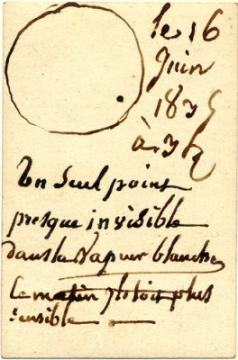 le 16
Juin
1835
à 3h
Un seul point
presque invisible
dans la vapeur blanche
le matin il étoit plus
sensible